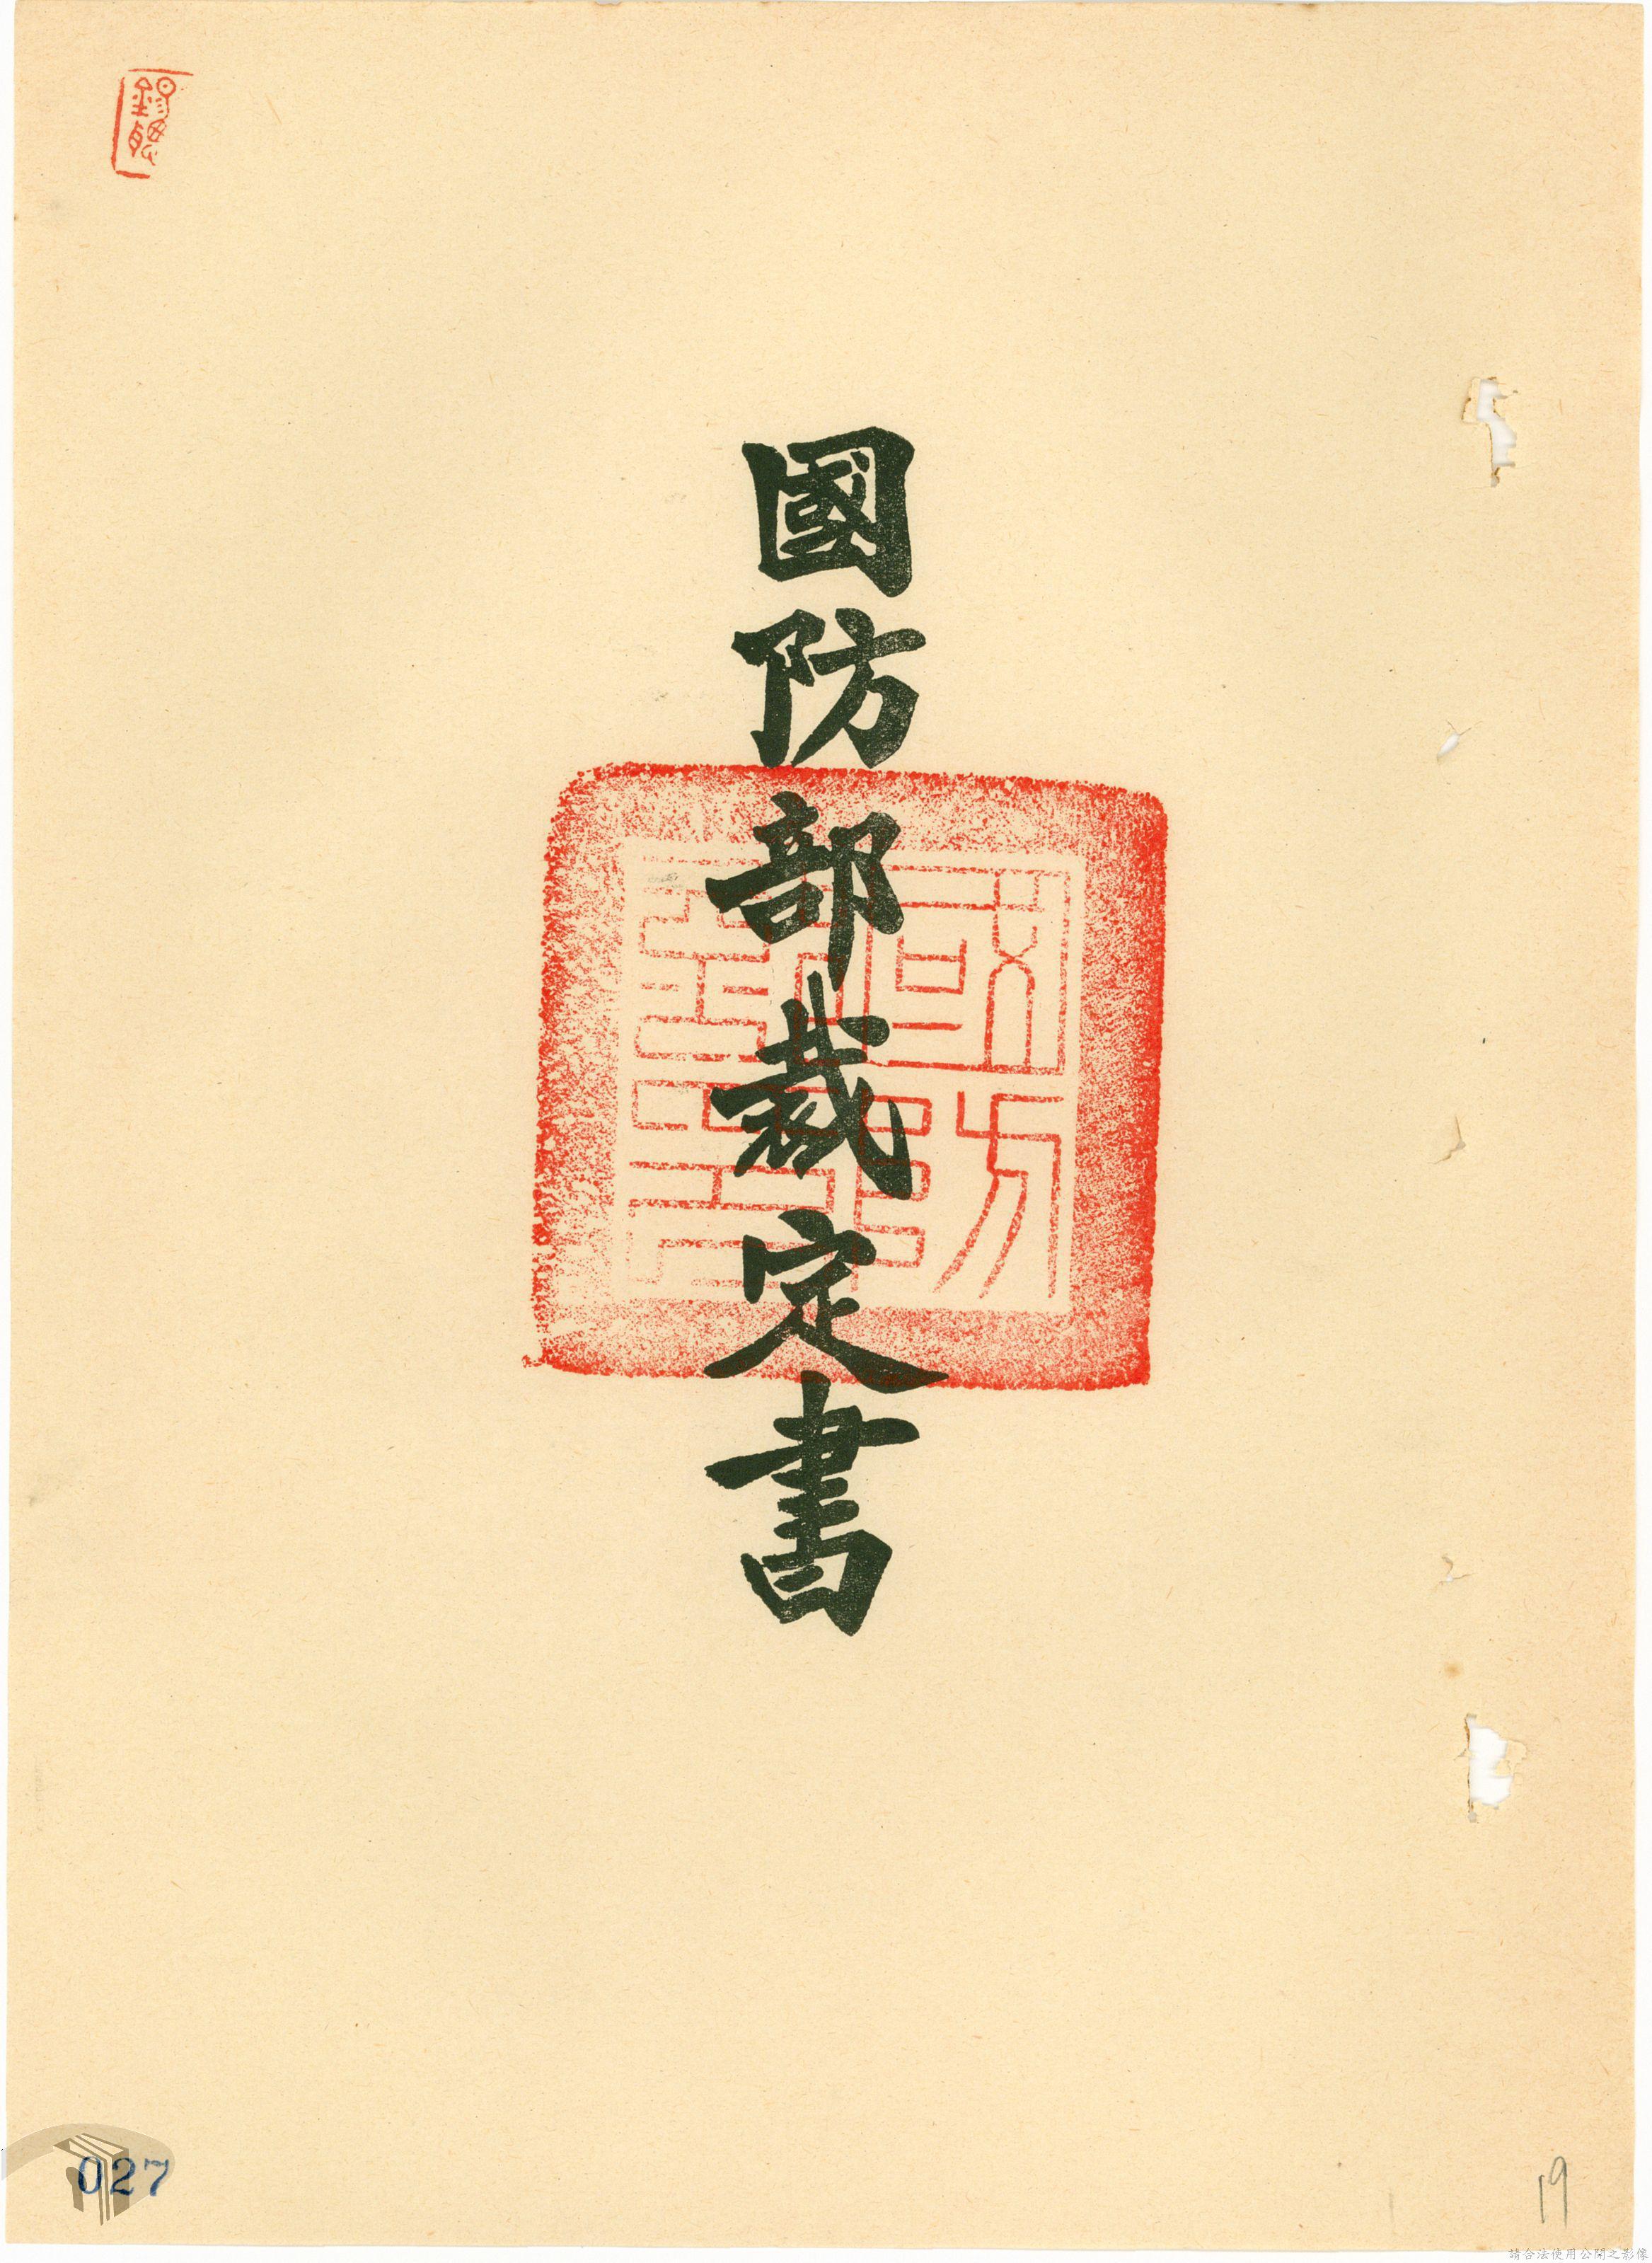 國防部裁定書
027
19
請合法使用公開之影像